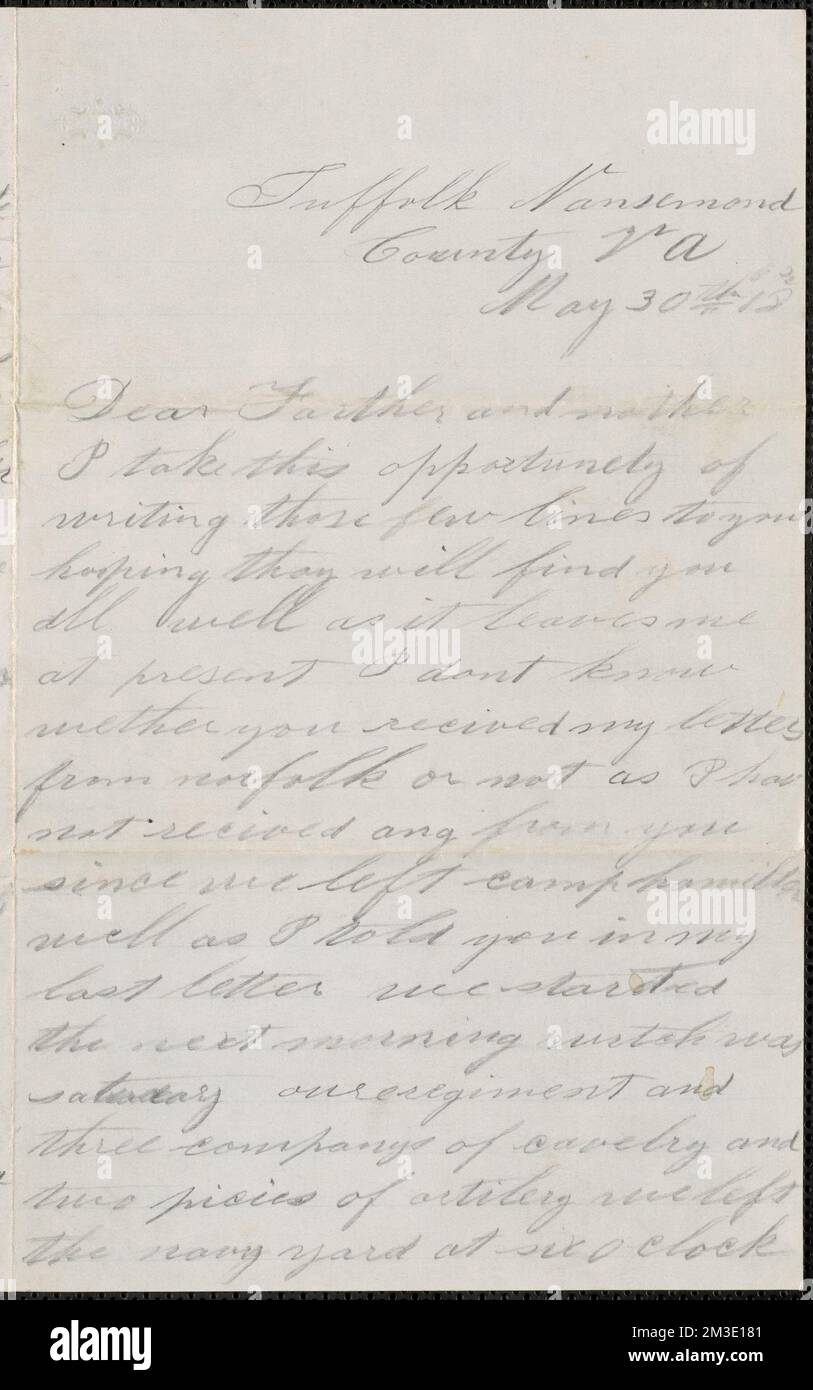 Suffolk Nansemond
County Va
May 30th 18
Dear Farther and mother
I take this opportunety of
writing those few lines to you
hooping thay will find you
all well as it leaves me
at present I dont know
wether you recived my letters
from norfolk or not as I hav
not recived any from you
since we left camp hamilton
well as I told you in my
last letter we started
the next morning witch was
saturday our regiment and
three companys of cavelry and
two picies of artilery we left
the navy yard at six o clock
alamy
alamy
alamy
Image ID: 2M3E181
www.alamy.com